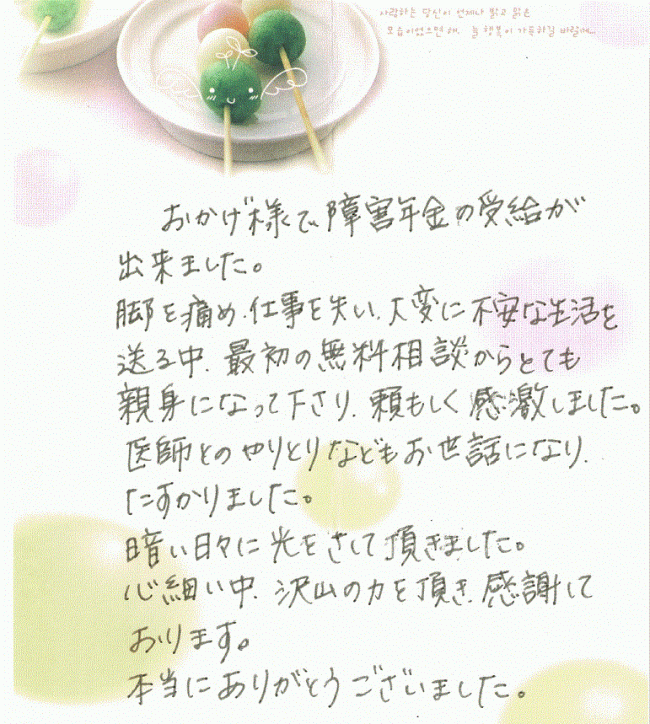 사랑하는 당신이 언제나 밝고 맑은
모습이었으면 해. 늘 행복이 가득하길 바랄께...
おかげ様で、障害年金の受給が
出来ました。
脚を痛め、仕事を失い、大変に不安な生活を
送る中、最初の無料相談からとても
親身になって下さり、頼もしく感激しました。
医師とのやりとりなどもお世話になり、
たすかりました。
暗い日々に光をさして頂きました。
心細い中、沢山の力を頂き、感謝して
おります。
本当にありがとうございました。